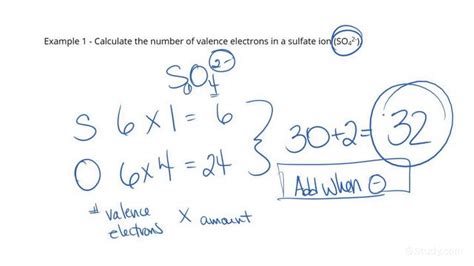 Example 1 - Calculate the number of valence electrons in a sulfate ion (SO₄²⁻)
SO₄²⁻
S 6 x 1 = 6
O 6 x 4 = 24
30 + 2 = 32
Add when ⊖
# valence electrons x amount
Study.com